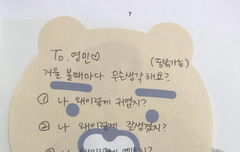 7
To. 영민♡
(중복가능)
거울 볼때마다 무슨생각해요?
① 나 왜이렇게 귀엽지?
② 나 왜이렇게 잘생겼지?
나 왜이렇게